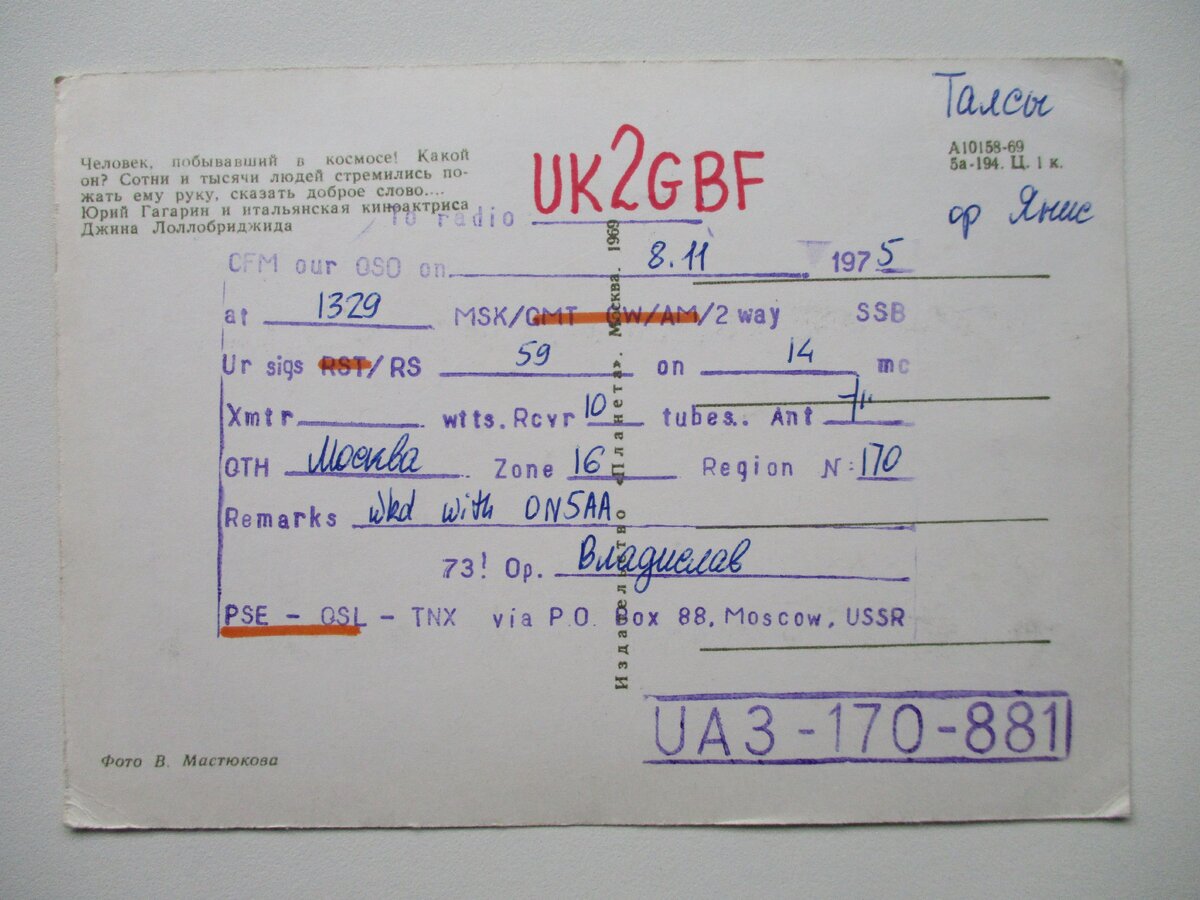 Талсы
А10158-69
5а-194. Ц. 1 к.
ор Янис
Человек, побывавший в космосе! Какой
он? Сотни и тысячи людей стремились по-
жать ему руку, сказать доброе слово....
Юрий Гагарин и итальянская киноактриса
Джина Лоллобриджида
To radio UK2GBF
CFM our QSO on 8.11 1975
at 1329 MSK/GMT CW/AM/2 way SSB
Ur sigs RST/RS 59 on 14 mc
Xmtr wtts. Rcvr 10 tubes.. Ant
QTH Москва Zone 16 Region N: 170
Remarks Wkd with ON5AA
73! Op. Владислав
PSE - QSL - TNX via P.O. Box 88, Moscow, USSR
Издательство «Планета». Москва. 1969
UA3-170-881
Фото В. Мастюкова